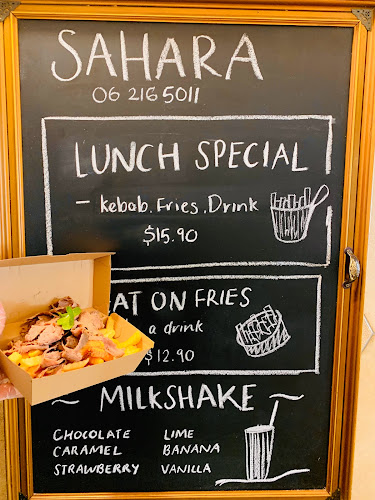 SAHARA
06 216 5011
LUNCH SPECIAL
- Kebab, Fries, Drink
$15.90
AT ON FRIES
a drink
$12.90
~ MILKSHAKE ~
CHOCOLATE LIME
CARAMEL BANANA
STRAWBERRY VANILLA